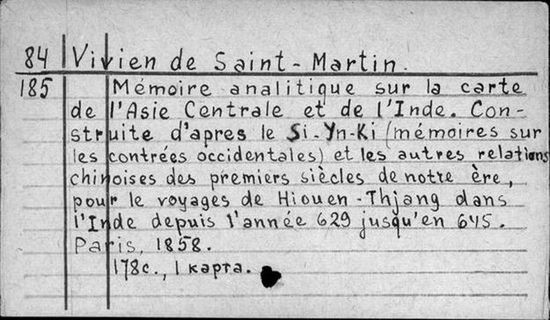 84 Vivien de Saint-Martin.
185 Mémoire analitique sur la carte
de l'Asie Centrale et de l'Inde. Con-
struite d'apres le Si-Yn-Ki (mémoires sur
les contrées occidentales) et les autres relations
chinoises des premiers siècles de notre ère,
pour le voyages de Hiouen-Thjang dans
l'Inde depuis l'année 629 jusqu'en 645.
Paris, 1858.
178с., 1 карта.